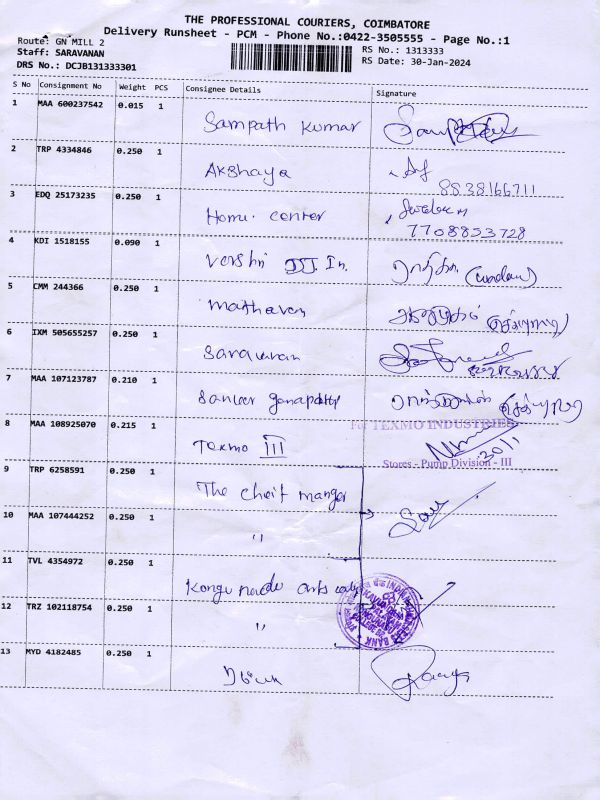 THE PROFESSIONAL COURIERS, COIMBATORE
Delivery Runsheet - PCM - Phone No.:0422-3505555 - Page No.:1
Route: GN MILL 2
Staff: SARAVANAN
DRS No.: DCJB131333301
RS No.: 1313333
RS Date: 30-Jan-2024
S No Consignment No Weight PCS Consignee Details Signature
1 MAA 600237542 0.015 1 Sampath Kumar
2 TRP 4334846 0.250 1 Akshaya
8838166711
3 EDQ 25173235 0.250 1 Home center
7708853728
4 KDI 1518155 0.090 1 Vershi
5 CMM 244366 0.250 1 Matharen
6 IXM 505655257 0.250 1 Saravanan
7 MAA 107123787 0.210 1 Sanleer ganapathy
8 MAA 108925070 0.215 1 Texmo III
For TEXMO INDUSTRIES
30/1
Stores - Pump Division - III
9 TRP 6258591 0.250 1 The cheif manger
10 MAA 107444252 0.250 1 "
11 TVL 4354972 0.250 1 Kongu nadu arts
12 TRZ 102118754 0.250 1 "
BANK
13 MYD 4182485 0.250 1